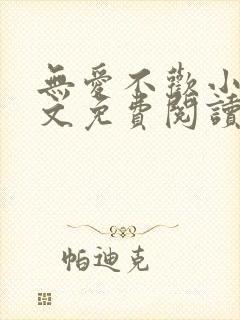 無愛不歡小
文免費閱讀
帕迪克